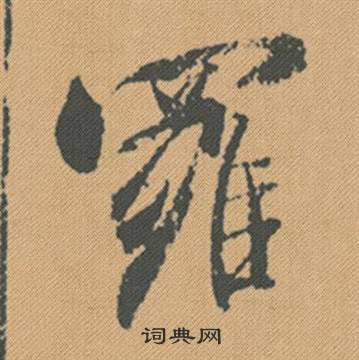 羅
词典网